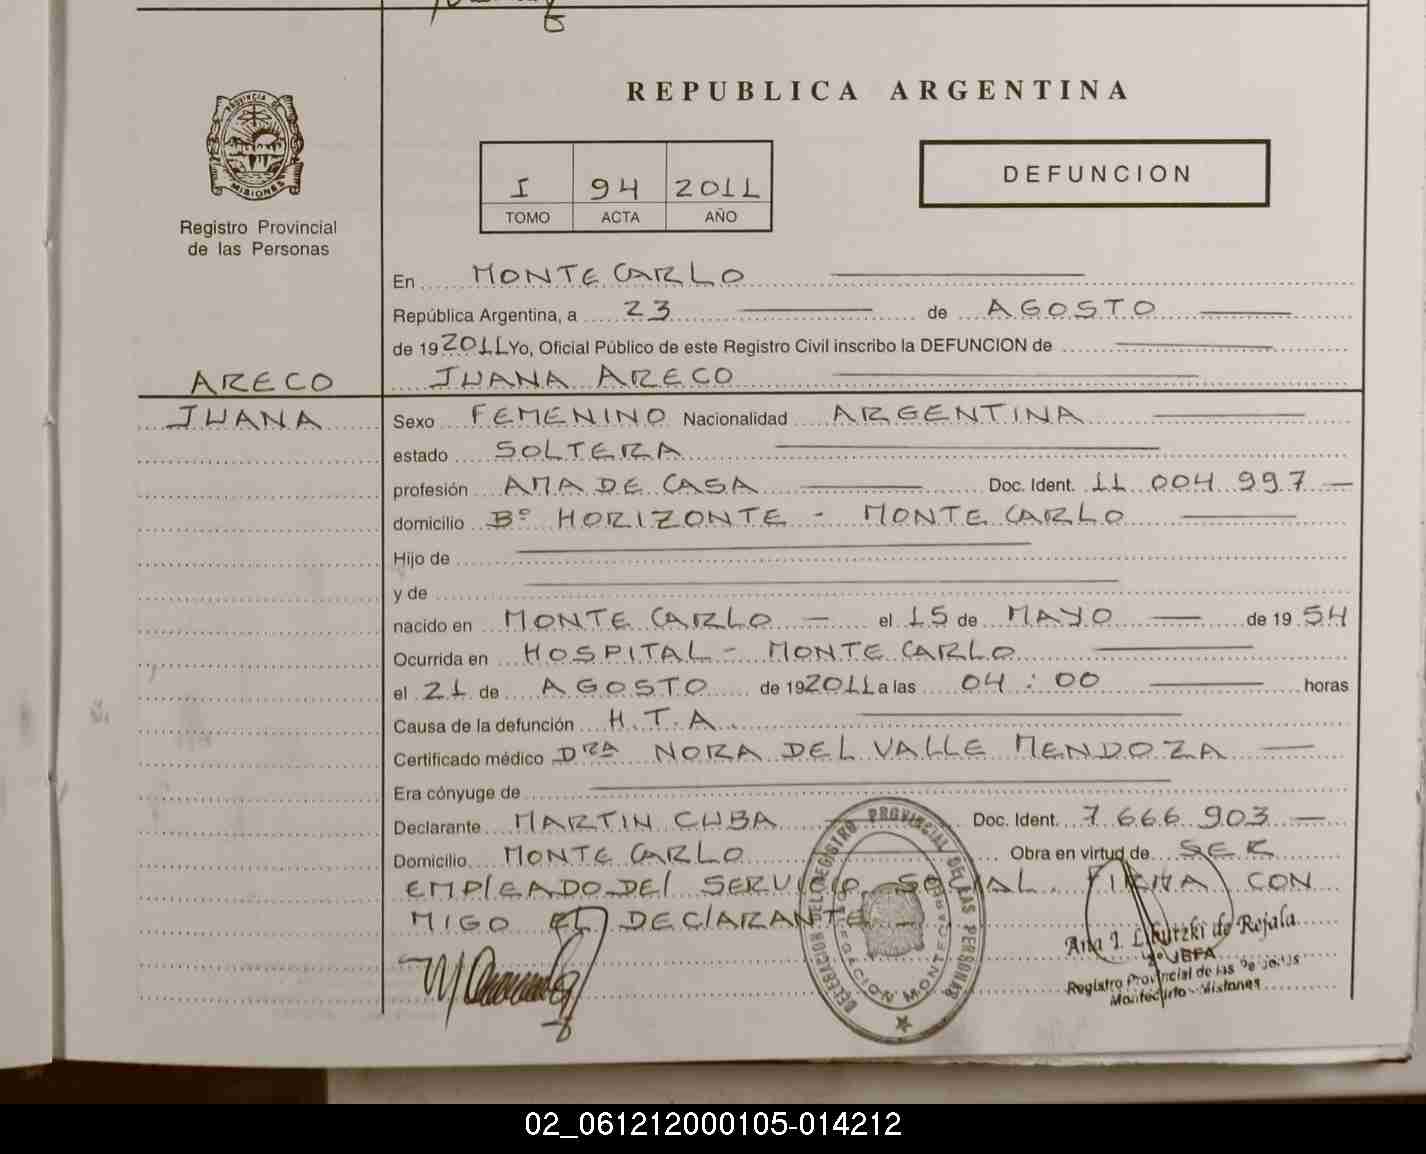 REPUBLICA ARGENTINA
PROVINCIA DE
MISIONES
Registro Provincial
de las Personas
I 94 2011
TOMO ACTA AÑO
DEFUNCION
En MONTE CARLO
República Argentina, a 23 de AGOSTO
de 192011 Yo, Oficial Público de este Registro Civil inscribo la DEFUNCION de
ARECO JUANA ARECO
JUANA Sexo FEMENINO Nacionalidad ARGENTINA
estado SOLTERA
profesión AMA DE CASA Doc. Ident. 11 004 997
domicilio Bº HORIZONTE - MONTE CARLO
Hijo de
y de
nacido en MONTE CARLO el 15 de MAYO de 19 54
Ocurrida en HOSPITAL - MONTE CARLO
el 21 de AGOSTO de 192011 a las 04:00 horas
Causa de la defunción H.T.A.
Certificado médico DRA NORA DEL VALLE MENDOZA
Era cónyuge de
Declarante MARTIN CUBA Doc. Ident. 7 666 903
Domicilio MONTE CARLO Obra en virtud de SER
EMPLEADO DEL SERVICIO SOCIAL. FIRMA CON
MIGO EL DECLARANTE
DELEGACION DEL REGISTRO PROVINCIAL DE LAS PERSONAS
DELEGACION MONTECARLO
Ana I. de Rojala
2º JEFA
Registro Provincial de las Personas
Montecarlo - Misiones
02_061212000105-014212